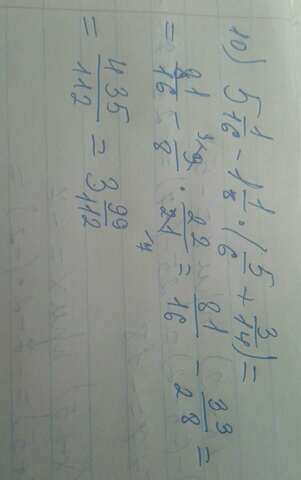 10) 5 1/16 - 1 1/8 · (5/6 + 3/14) =
= 81/16 - 9/8 · 22/21 = 81/16 - 33/28 =
= 435/112 = 3 99/112